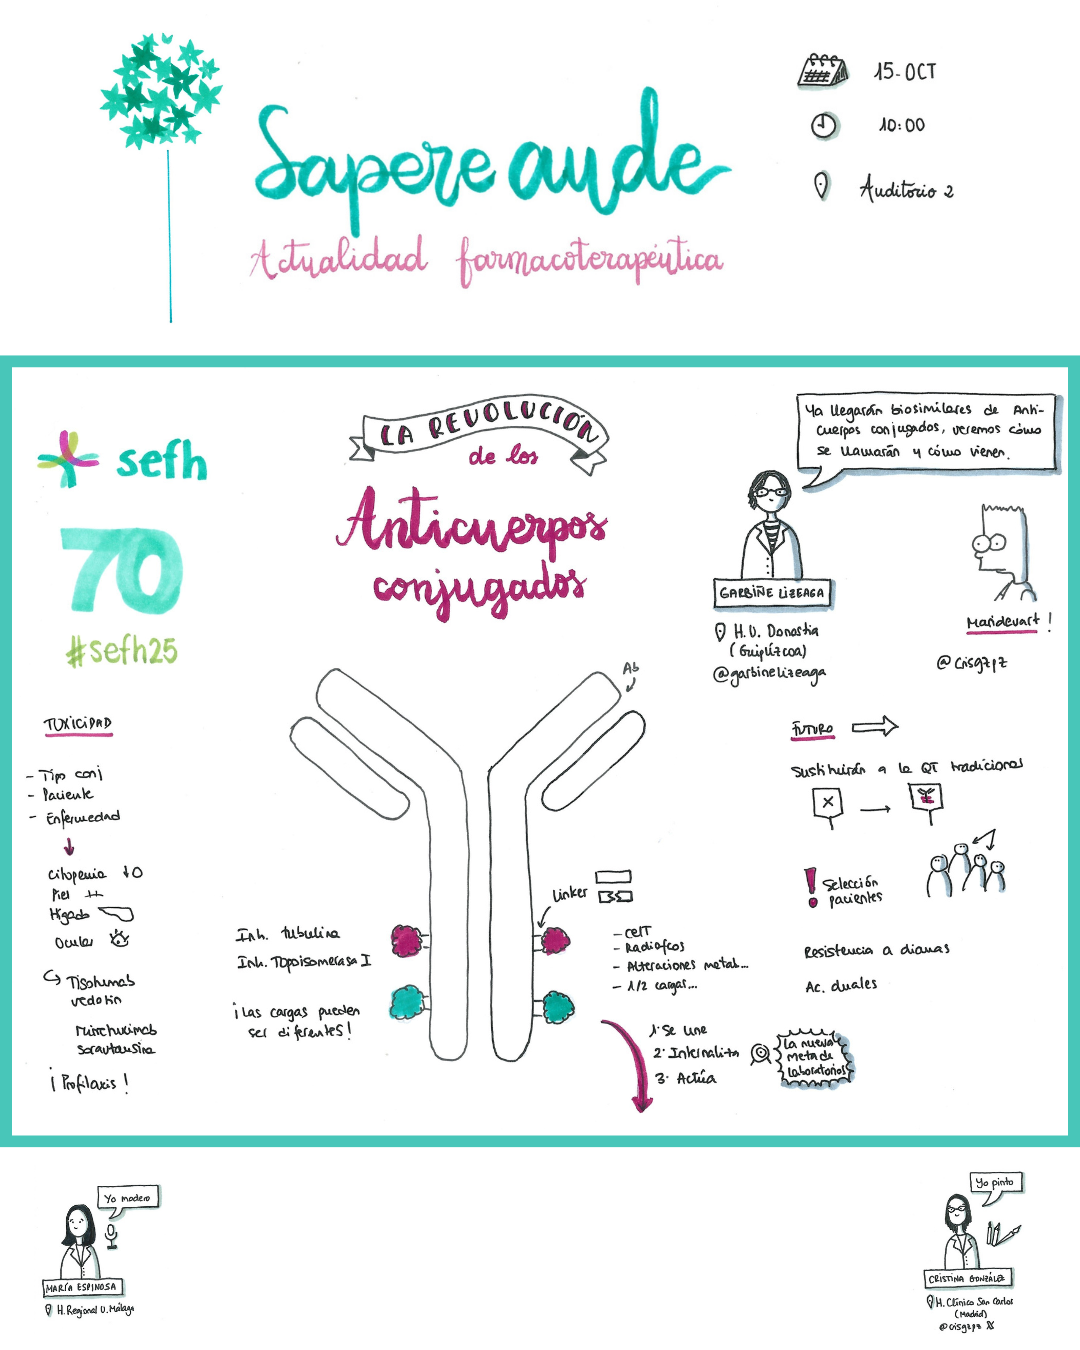 Sapere aude
Actualidad farmacoterapéutica
15-OCT
10:00
Auditorio 2
sefh
70
#sefh25
LA REVOLUCIÓN
de los
Anticuerpos
conjugados
Ya llegarán biosimilares de Anti-
cuerpos conjugados, veremos cómo
se llamarán y cómo vienen.
GARBIÑE LIZEAGA
H.U. Donostia
(Guipúzcoa)
@garbinelizeaga
Mandevart!
@crisgzpz
TOXICIDAD
- Tipo conj
- Paciente
- Enfermedad
Citopenia
Piel
Hígado
Ocular
Tisotumab
vedotin
Mirvetuximab
soravtansina
¡Profilaxis!
Ab
Linker
SS
Inh. tubulina
Inh. Topoisomerasa I
¡Las cargas pueden
ser diferentes!
- Radiofcos
- Alteraciones metab...
- 1/2 cargas...
1. Se une
2. Internaliza
3. Actúa
La nueva
meta de
laboratorios
FUTURO
Sustituirán a la QT tradicional
! Selección
pacientes
Resistencia a dianas
Ac. duales
Yo modero
MARÍA ESPINOSA
H. Regional U. Málaga
Yo pinto
CRISTINA GONZÁLEZ
H. Clínico San Carlos
(Madrid)
@crisgzpz X